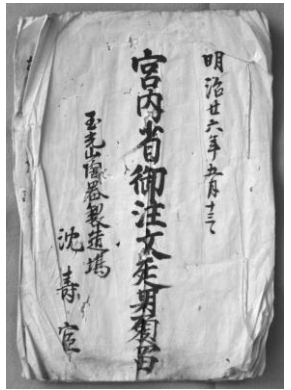 明治廿六年五月十三日
宮内省御注文延期願
玉光山陶器製造場
沈壽官